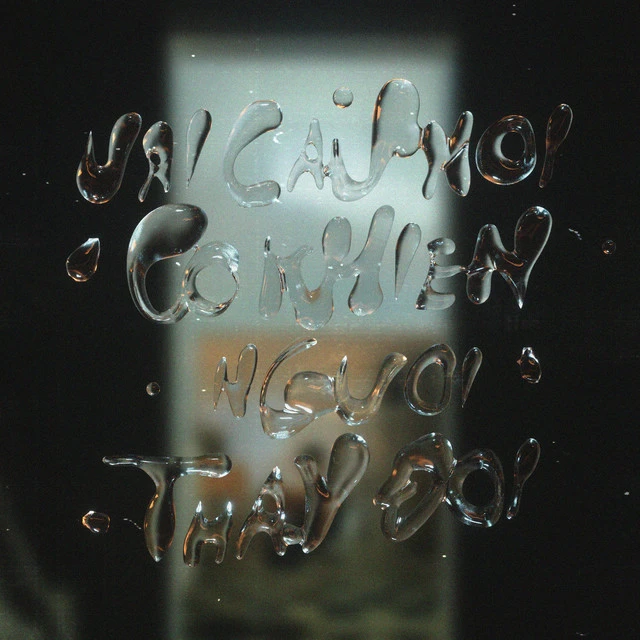 VAI CAU NOI
CO KHIEN
NGUOI
THAY DOI